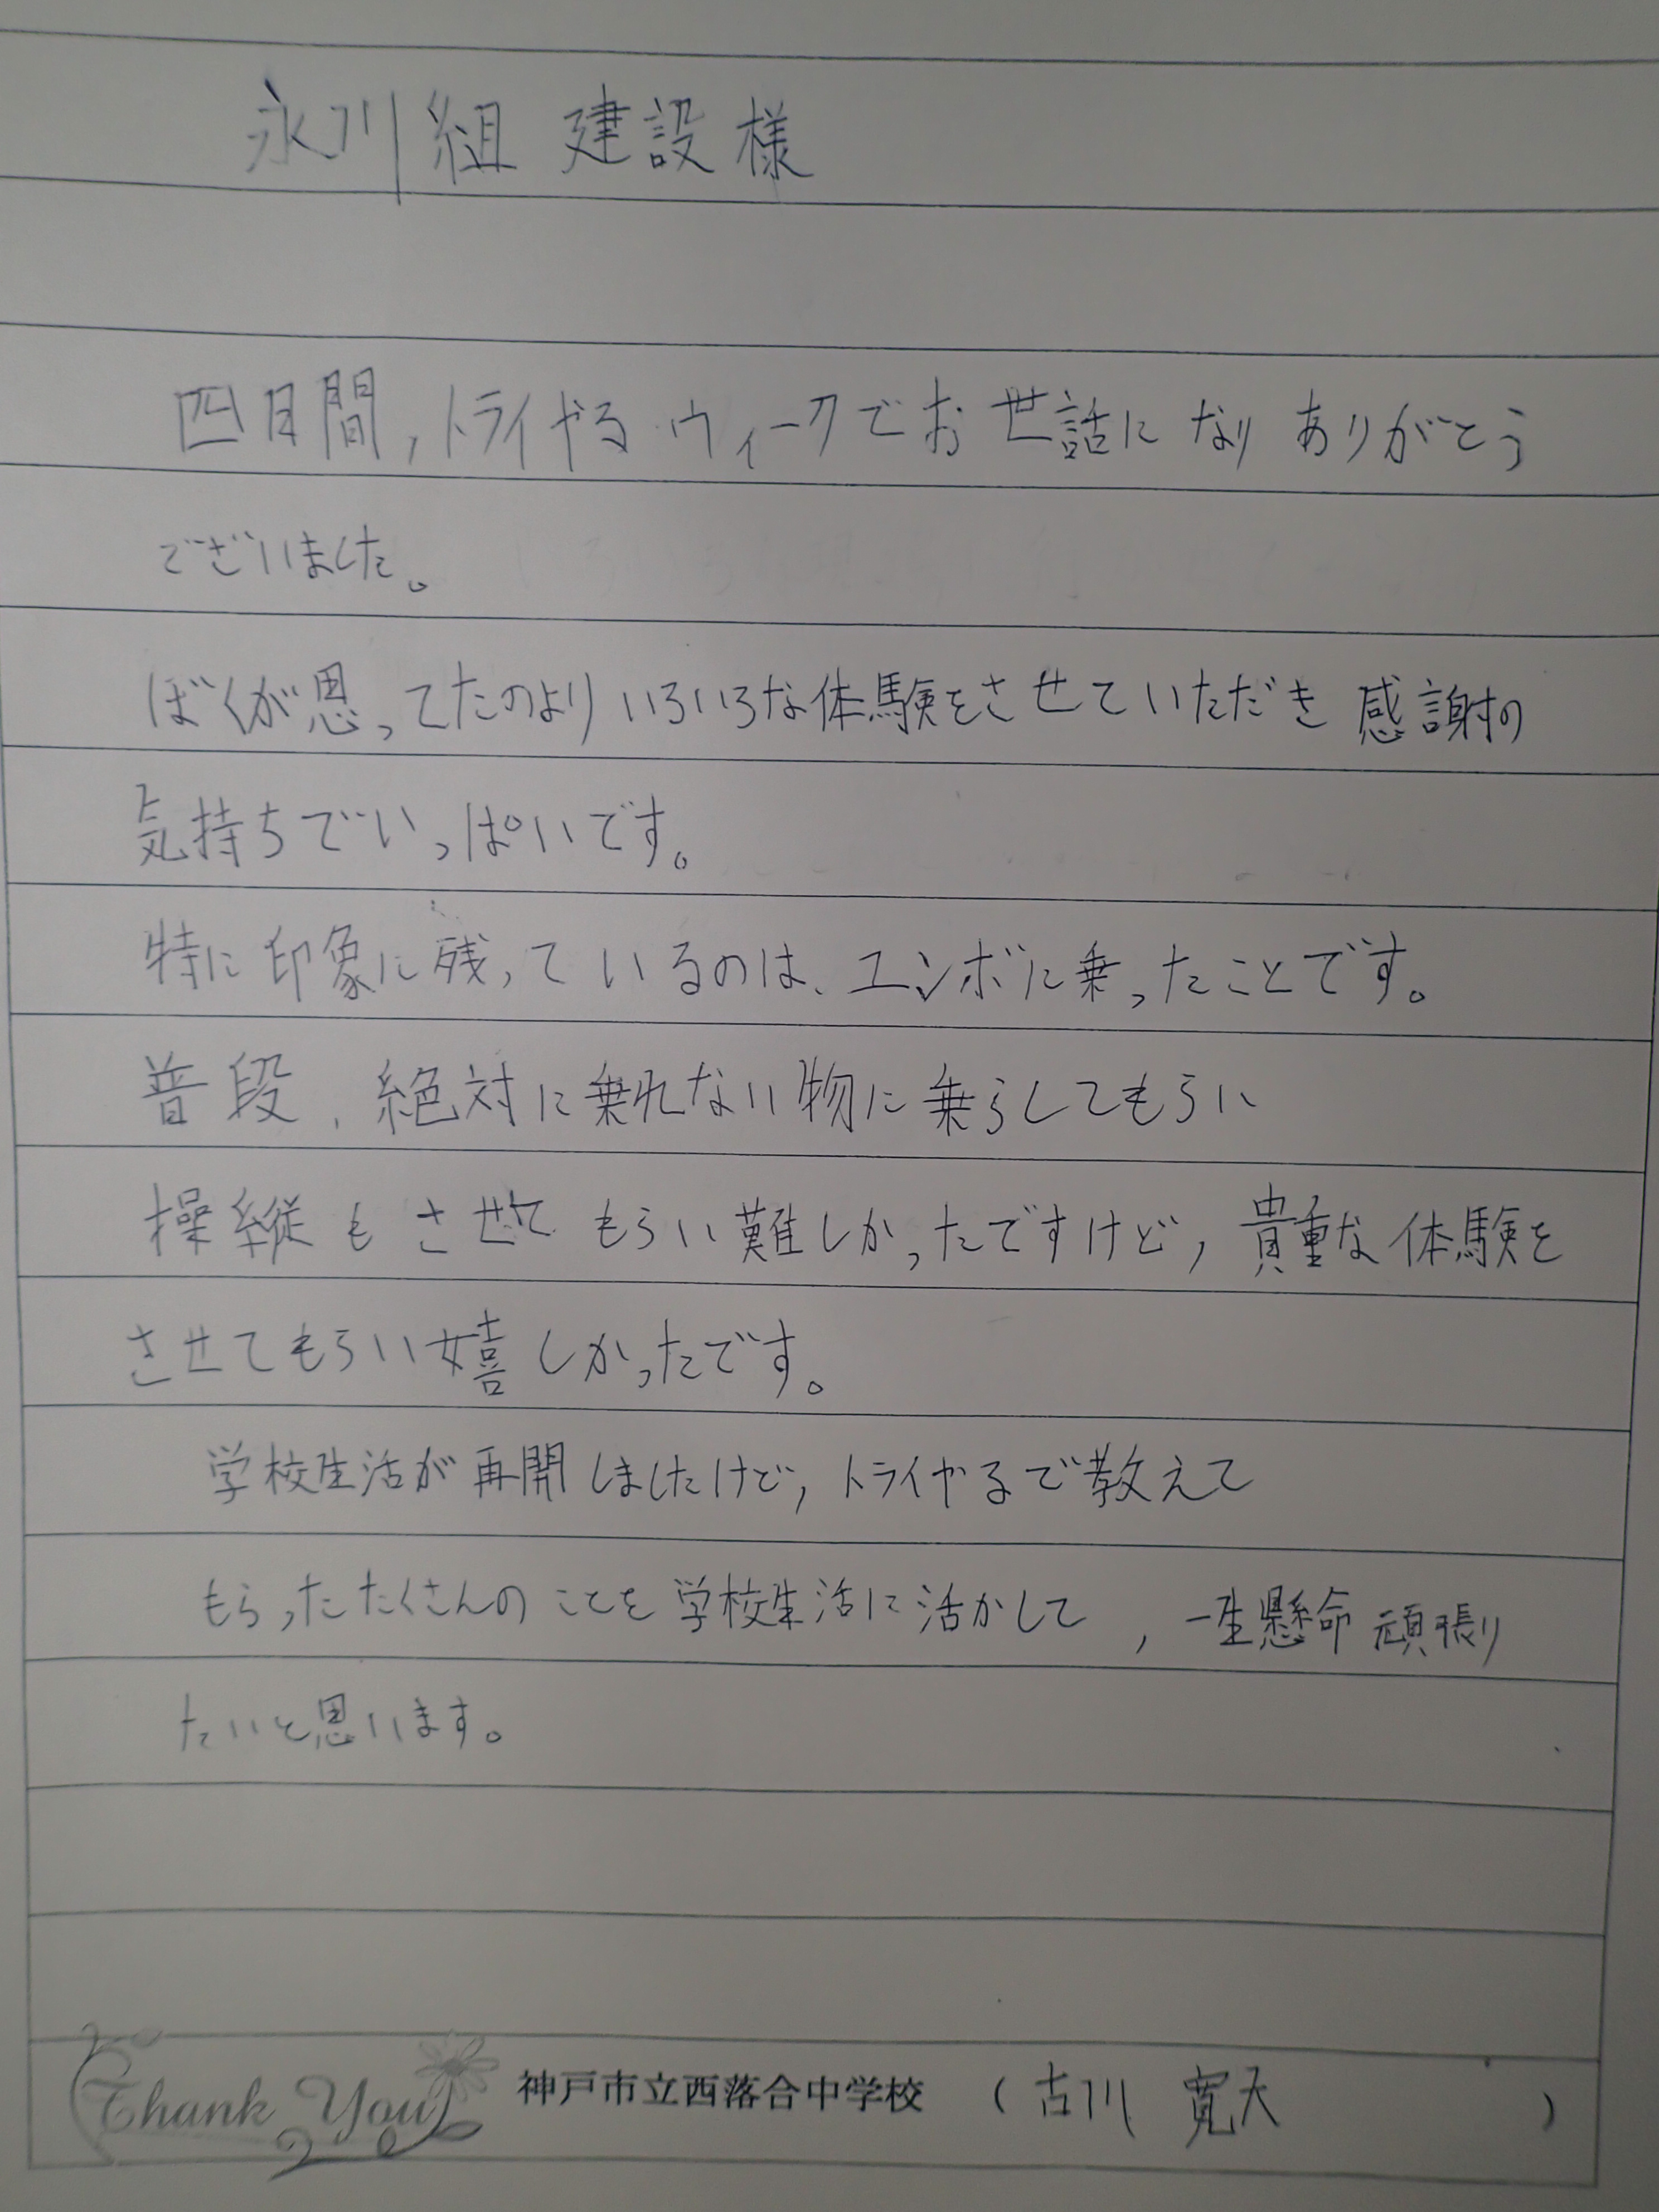 永川組 建設様
四日間,トライやるウィークでお世話になりありがとう
ございました。
ぼくが思ってたのよりいろいろな体験をさせていただき感謝の
気持ちでいっぱいです。
特に印象に残っているのは、ユンボに乗ったことです。
普段、絶対に乗れない物に乗らしてもらい
操縦もさせてもらい難しかったですけど,貴重な体験を
させてもらい嬉しかったです。
学校生活が再開しましたけど,トライやるで教えて
もらったたくさんのことを学校生活に活かして,一生懸命頑張り
たいと思います。
Thank You 神戸市立西落合中学校 (古川 寛大)